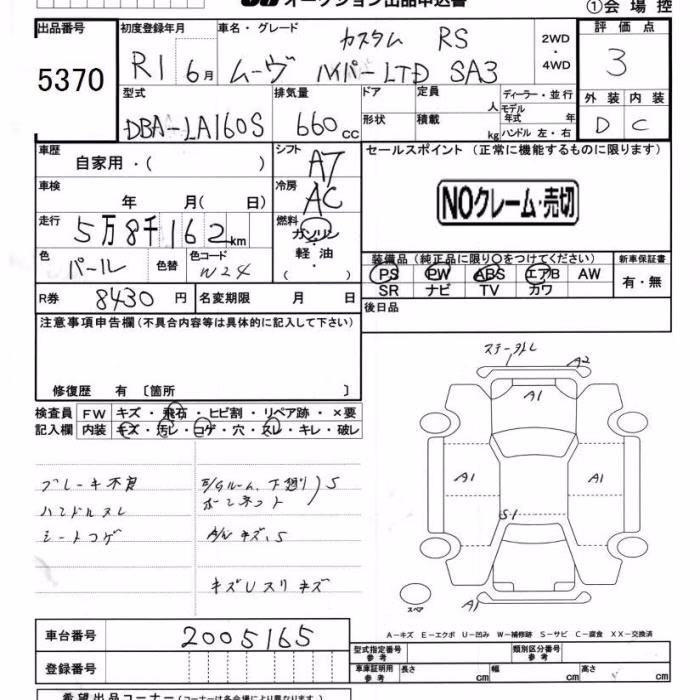 オークション出品申込書
①会場控
出品番号 初度登録年月 車名・グレード 評価点
5370
R1 6月
カスタム RS
ムーヴ ハイパーLTD SA3
2WD
・
4WD
3
型式 排気量 ドア 定員 人 ディーラー・並行
外装 内装
DBA-LA160S 660cc
形状 積載 kg
モデル年式 年式
ハンドル 左・右
D C
車歴 自家用・( )
シフト AT
セールスポイント (正常に機能するものに限ります)
車検 年 月( 日)
冷房 AC
NOクレーム・売切
走行 5万8千162km
燃料 ガソリン・軽油・( )
色 パール 色替 色コード W24
装備品(純正品に限り○をつけてください) 新車保証書
PS PW ABS エアB AW 有・無
SR ナビ TV カワ
R券 8430円 名変期限 月 日
後日品
注意事項申告欄(不具合内容等は具体的に記入して下さい)
修復歴 有 〔箇所 〕
検査員 FW キズ・飛石・ヒビ割・リペア跡・×要
記入欄 内装 キズ・汚レ・コゲ・穴・スレ・キレ・破レ
ブレーキ不良
ハンドルスレ
シートコゲ
E/Gルーム、下廻り)S
ボーンネット
A/W キズ、S
キズUスリキズ
A2
A1
A1 A1
S1
スペア
A1
A-キズ E-エクボ U-凹み W-補修跡 S-サビ C-腐食 XX-交換済
車台番号 2005165
型式指定番号 参考 類別区分番号 参考
登録番号
車庫証明用 参考 長さ cm 幅 cm 高さ cm
希望出品コーナー(コーナーは各会場により異なります)